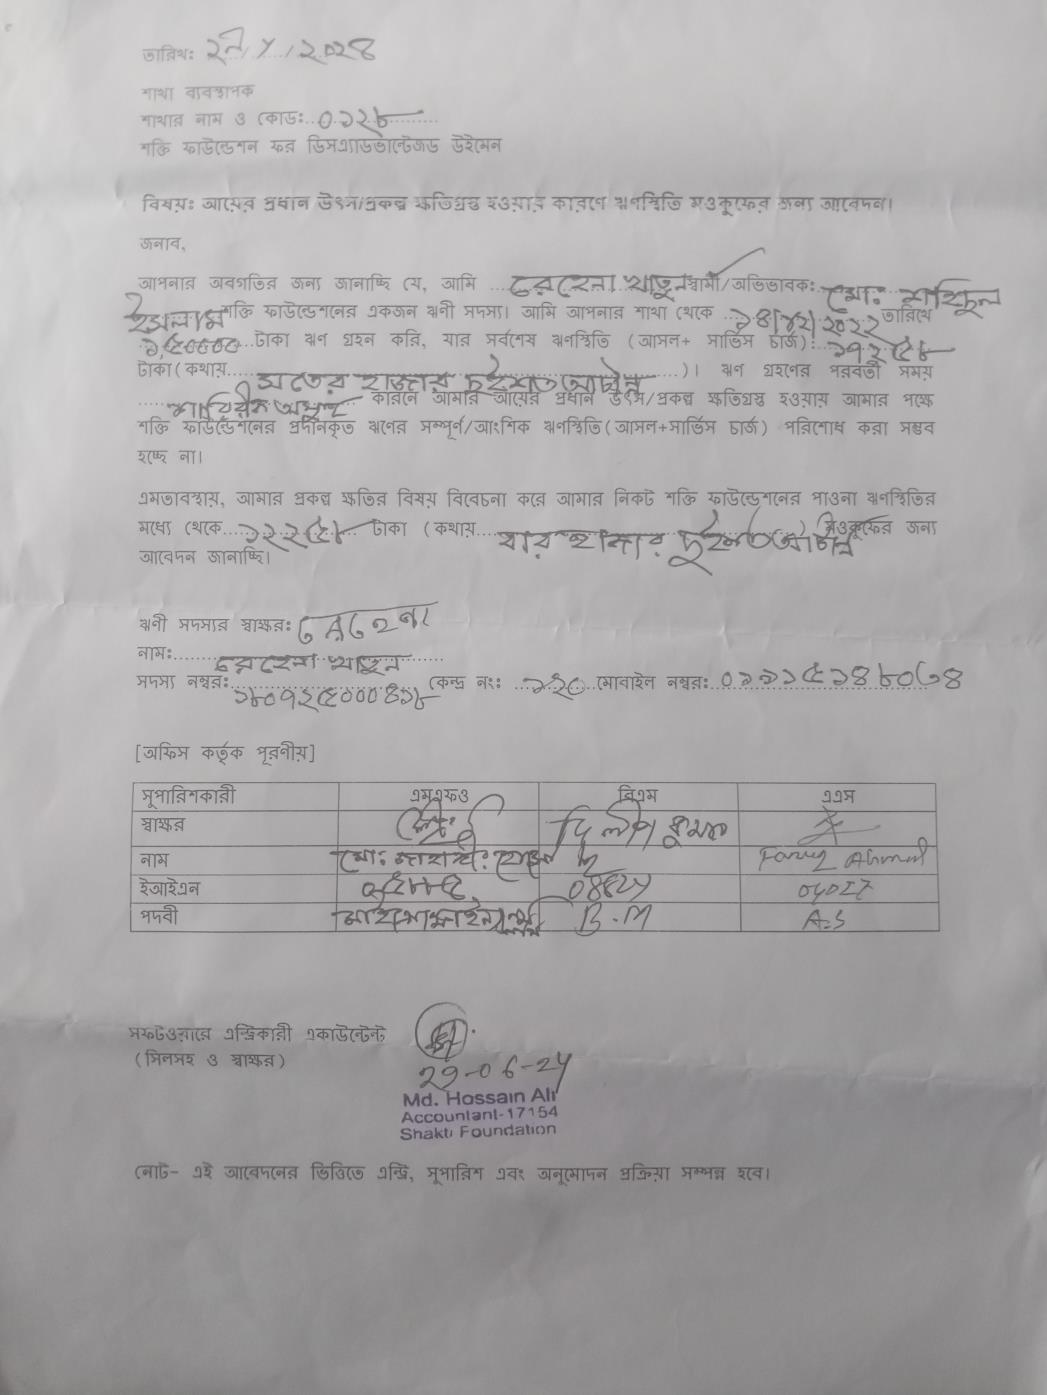 তারিখঃ ২৯/৬/২০২৪
শাখা ব্যবস্থাপক
শাখার নাম ও কোডঃ..০১২৮..........
শক্তি ফাউন্ডেশন ফর ডিসএ্যাডভান্টেজড উইমেন
বিষয়ঃ আয়ের প্রধান উৎস/প্রকল্প ক্ষতিগ্রস্ত হওয়ার কারণে ঋণস্থিতি মওকুফের জন্য আবেদন।
জনাব,
আপনার অবগতির জন্য জানাচ্ছি যে, আমি ....রেহেনা খাতুন স্বামী/অভিভাবকঃ মোঃ শফিকুল
ইসলাম শক্তি ফাউন্ডেশনের একজন ঋনী সদস্য। আমি আপনার শাখা থেকে ..১৪/১২/২০২২ তারিখে
১,৫০০০০ টাকা ঋণ গ্রহন করি, যার সর্বশেষ ঋণস্থিতি (আসল+ সার্ভিস চার্জ): ১৭২৫৮
টাকা(কথায়....সতের হাজার দুইশত আটান্ন......)। ঋণ গ্রহণের পরবর্তী সময়
....শারিরীক অসুস্থ কারনে আমার আয়ের প্রধান উৎস/প্রকল্প ক্ষতিগ্রস্ত হওয়ায় আমার পক্ষে
শক্তি ফাউন্ডেশনের প্রদানকৃত ঋণের সম্পূর্ণ/আংশিক ঋণস্থিতি(আসল+সার্ভিস চার্জ) পরিশোধ করা সম্ভব
হচ্ছে না।
এমতাবস্থায়, আমার প্রকল্প ক্ষতির বিষয় বিবেচনা করে আমার নিকট শক্তি ফাউন্ডেশনের পাওনা ঋণস্থিতির
মধ্যে থেকে...১২২৫৮... টাকা (কথায়....বার হাজার দুইশত আটান্ন) মওকুফের জন্য
আবেদন জানাচ্ছি।
ঋনী সদস্যর স্বাক্ষরঃ রেহেনা
নামঃ.....রেহেনা খাতুন......
সদস্য নম্বরঃ ১৮০৭২৫০০০৪১৮ কেন্দ্র নংঃ ..১২০.. মোবাইল নম্বরঃ ০১৯১৫১৪৮০৩৪
[অফিস কর্তৃক পূরনীয়]
সুপারিশকারী এমএফও বিএম এএস
স্বাক্ষর দিলীপ কুমার
নাম মোঃ Faruq Ahmed
ইআইএন ০৫৮৮৫ 04027
পদবী B.M A.S
সফটওয়ারে এন্ট্রিকারী একাউন্টেন্ট
(সিলসহ ও স্বাক্ষর)
29-06-24
Md. Hossain Ali
Accountant-17154
Shakti Foundation
নোট- এই আবেদনের ভিত্তিতে এন্ট্রি, সুপারিশ এবং অনুমোদন প্রক্রিয়া সম্পন্ন হবে।